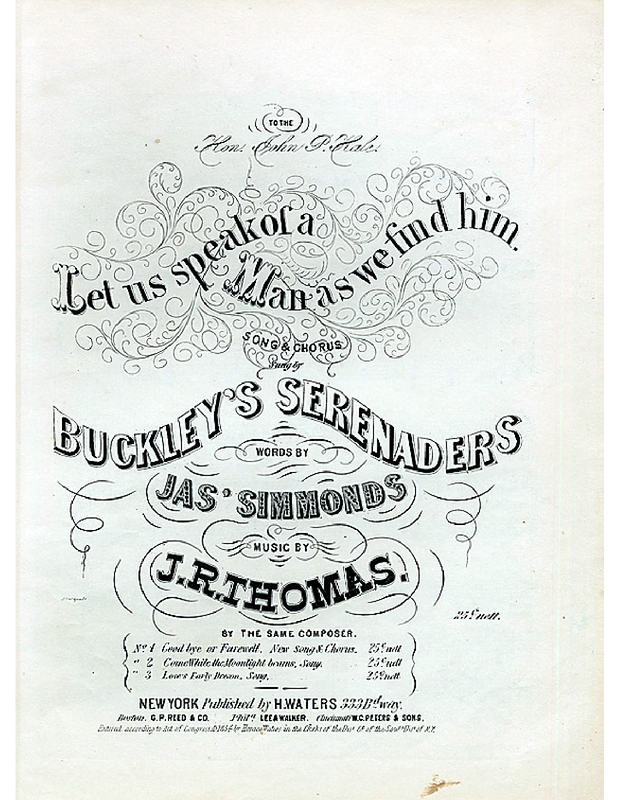 TO THE
Hon. John P. Hale.
Let us speak of a
Man as we find him.
SONG & CHORUS
Sung by
BUCKLEY'S SERENADERS
WORDS BY
JAS' SIMMONDS
MUSIC BY
J.R.THOMAS.
25cts nett.
BY THE SAME COMPOSER.
No 1 Good bye or Farewell. New Song & Chorus. 25c nett
" 2 Come While the Moonlight beams, Song. 25c nett
" 3 Love's Early Dream, Song. 25c nett
NEW YORK Published by H.WATERS 333 Bdway.
Boston. G.P. REED & CO. Phila LEE & WALKER. Cincinnati W.C. PETERS & SONS.
Entered according to Act of Congress AD 1854 by Horace Waters in the Clerks of the Dist Ct of the South Dist of N.Y.